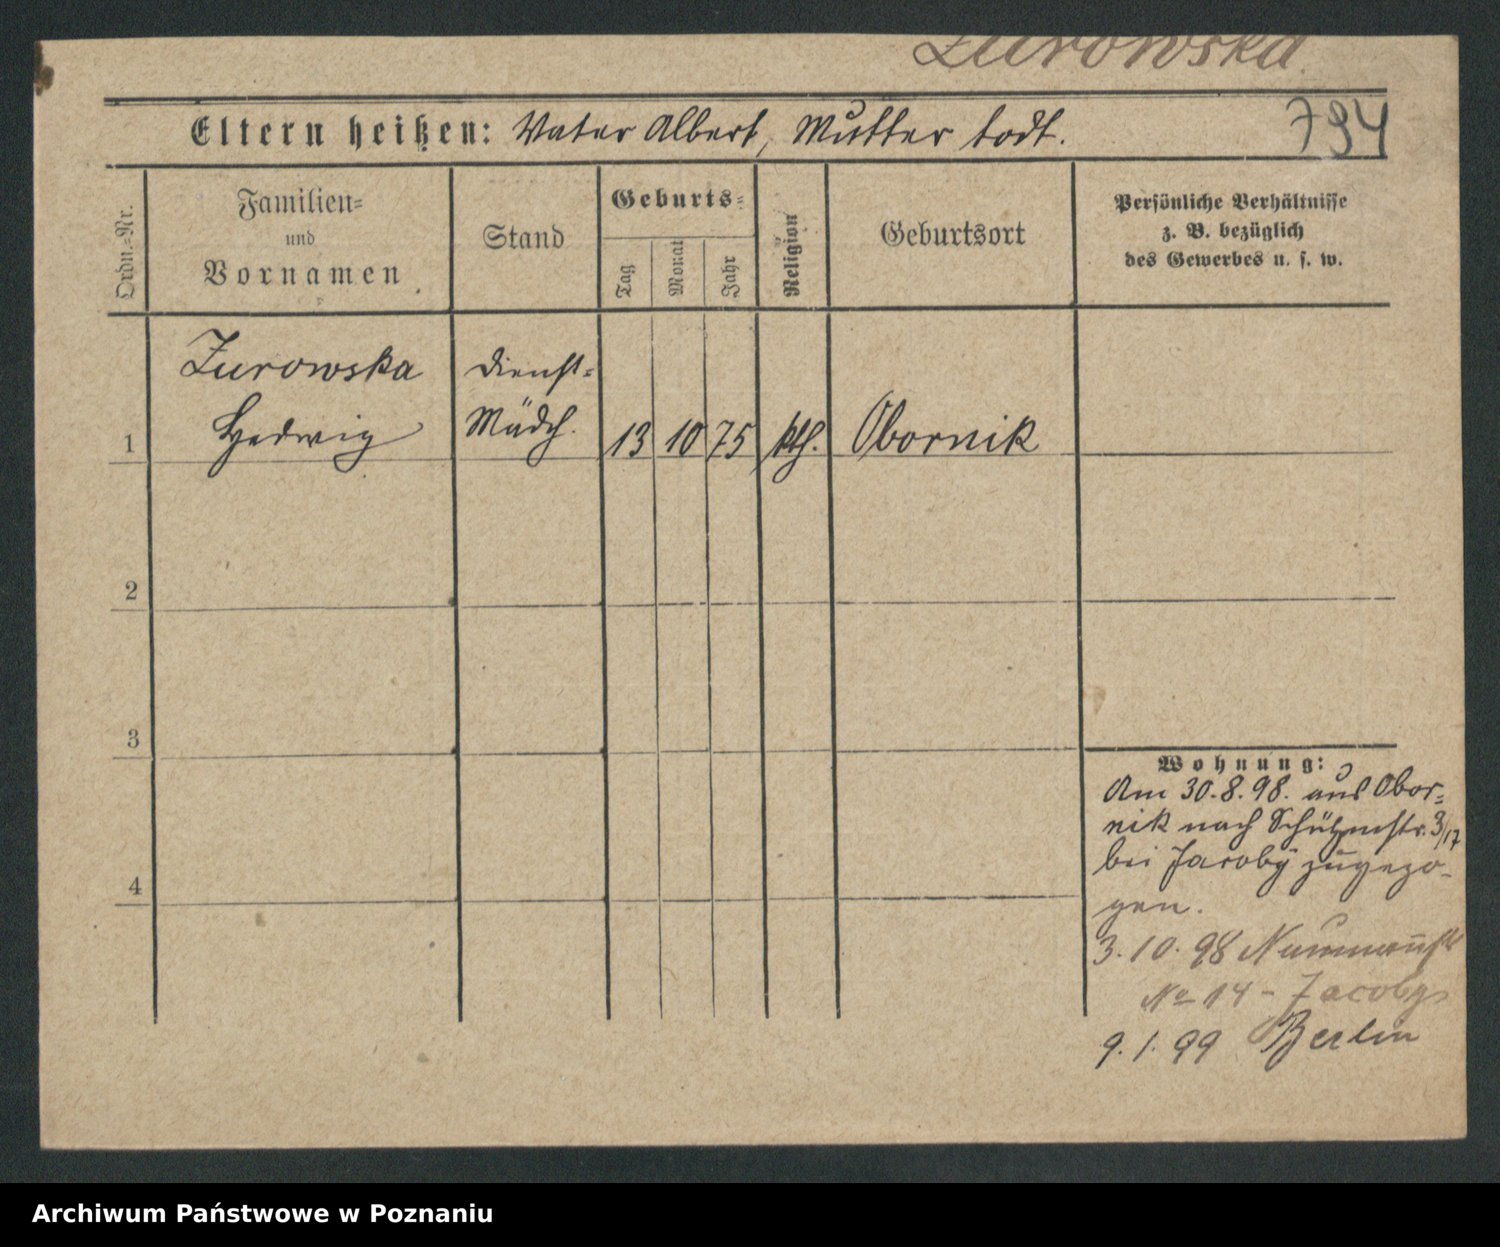 Zurowska
Eltern heißen: Vater Albert, Mutter todt.
794
Ordn.=Nr.
Familien=
und
Vornamen
Stand
Geburts=
Tag
Monat
Jahr
Religion
Geburtsort
Persönliche Verhältnisse
z. B. bezüglich
des Gewerbes u. s. w.
Zurowska
Hedwig
Dienst=
Mädch.
1
13
10
75
kth.
Obornik
2
3
4
Wohnung:
Am 30.8.98. aus Obor=
nik nach Schützenstr. 3/17
bei Jacoby zugezo-
gen.
3.10.98 Naumannstr
No 14 - Jacoby
9.1.99 Berlin
Archiwum Państwowe w Poznaniu